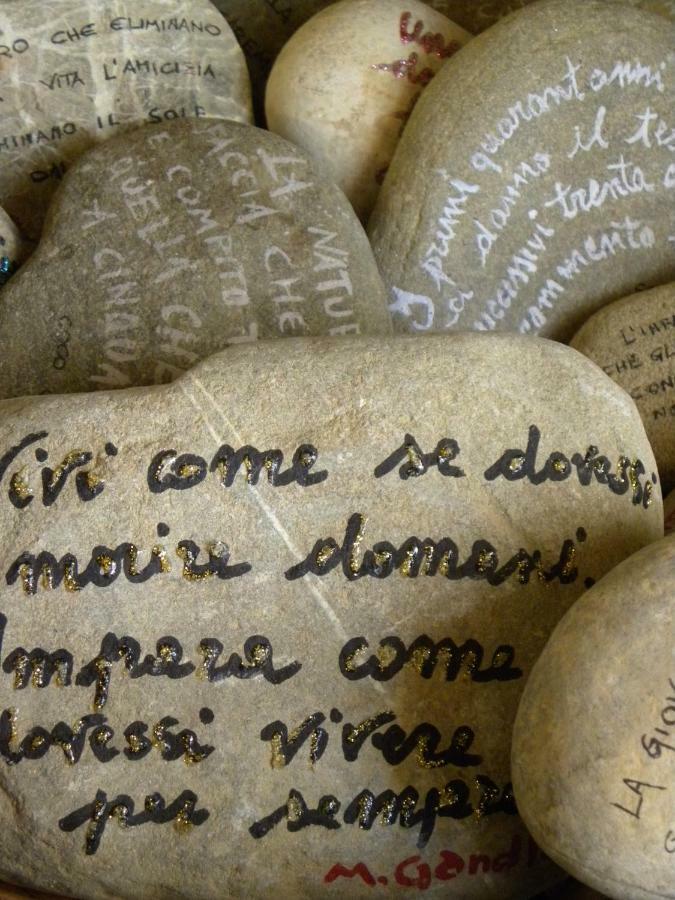 RO CHE ELIMINANO
VITA L'AMICIZIA
MINANO IL SOLE
I primi quarant'anni
danno il tes
uccessivi trenta
commento
LA NATUR
FACCIA CHE
E COMPITO
QUELLA CHE
A CINQUA
CHE GL
CON
NO
Vivi come se dovessi
morire domani.
Impara come
dovessi vivere
per sempre
M. Gandh
LA GIOV